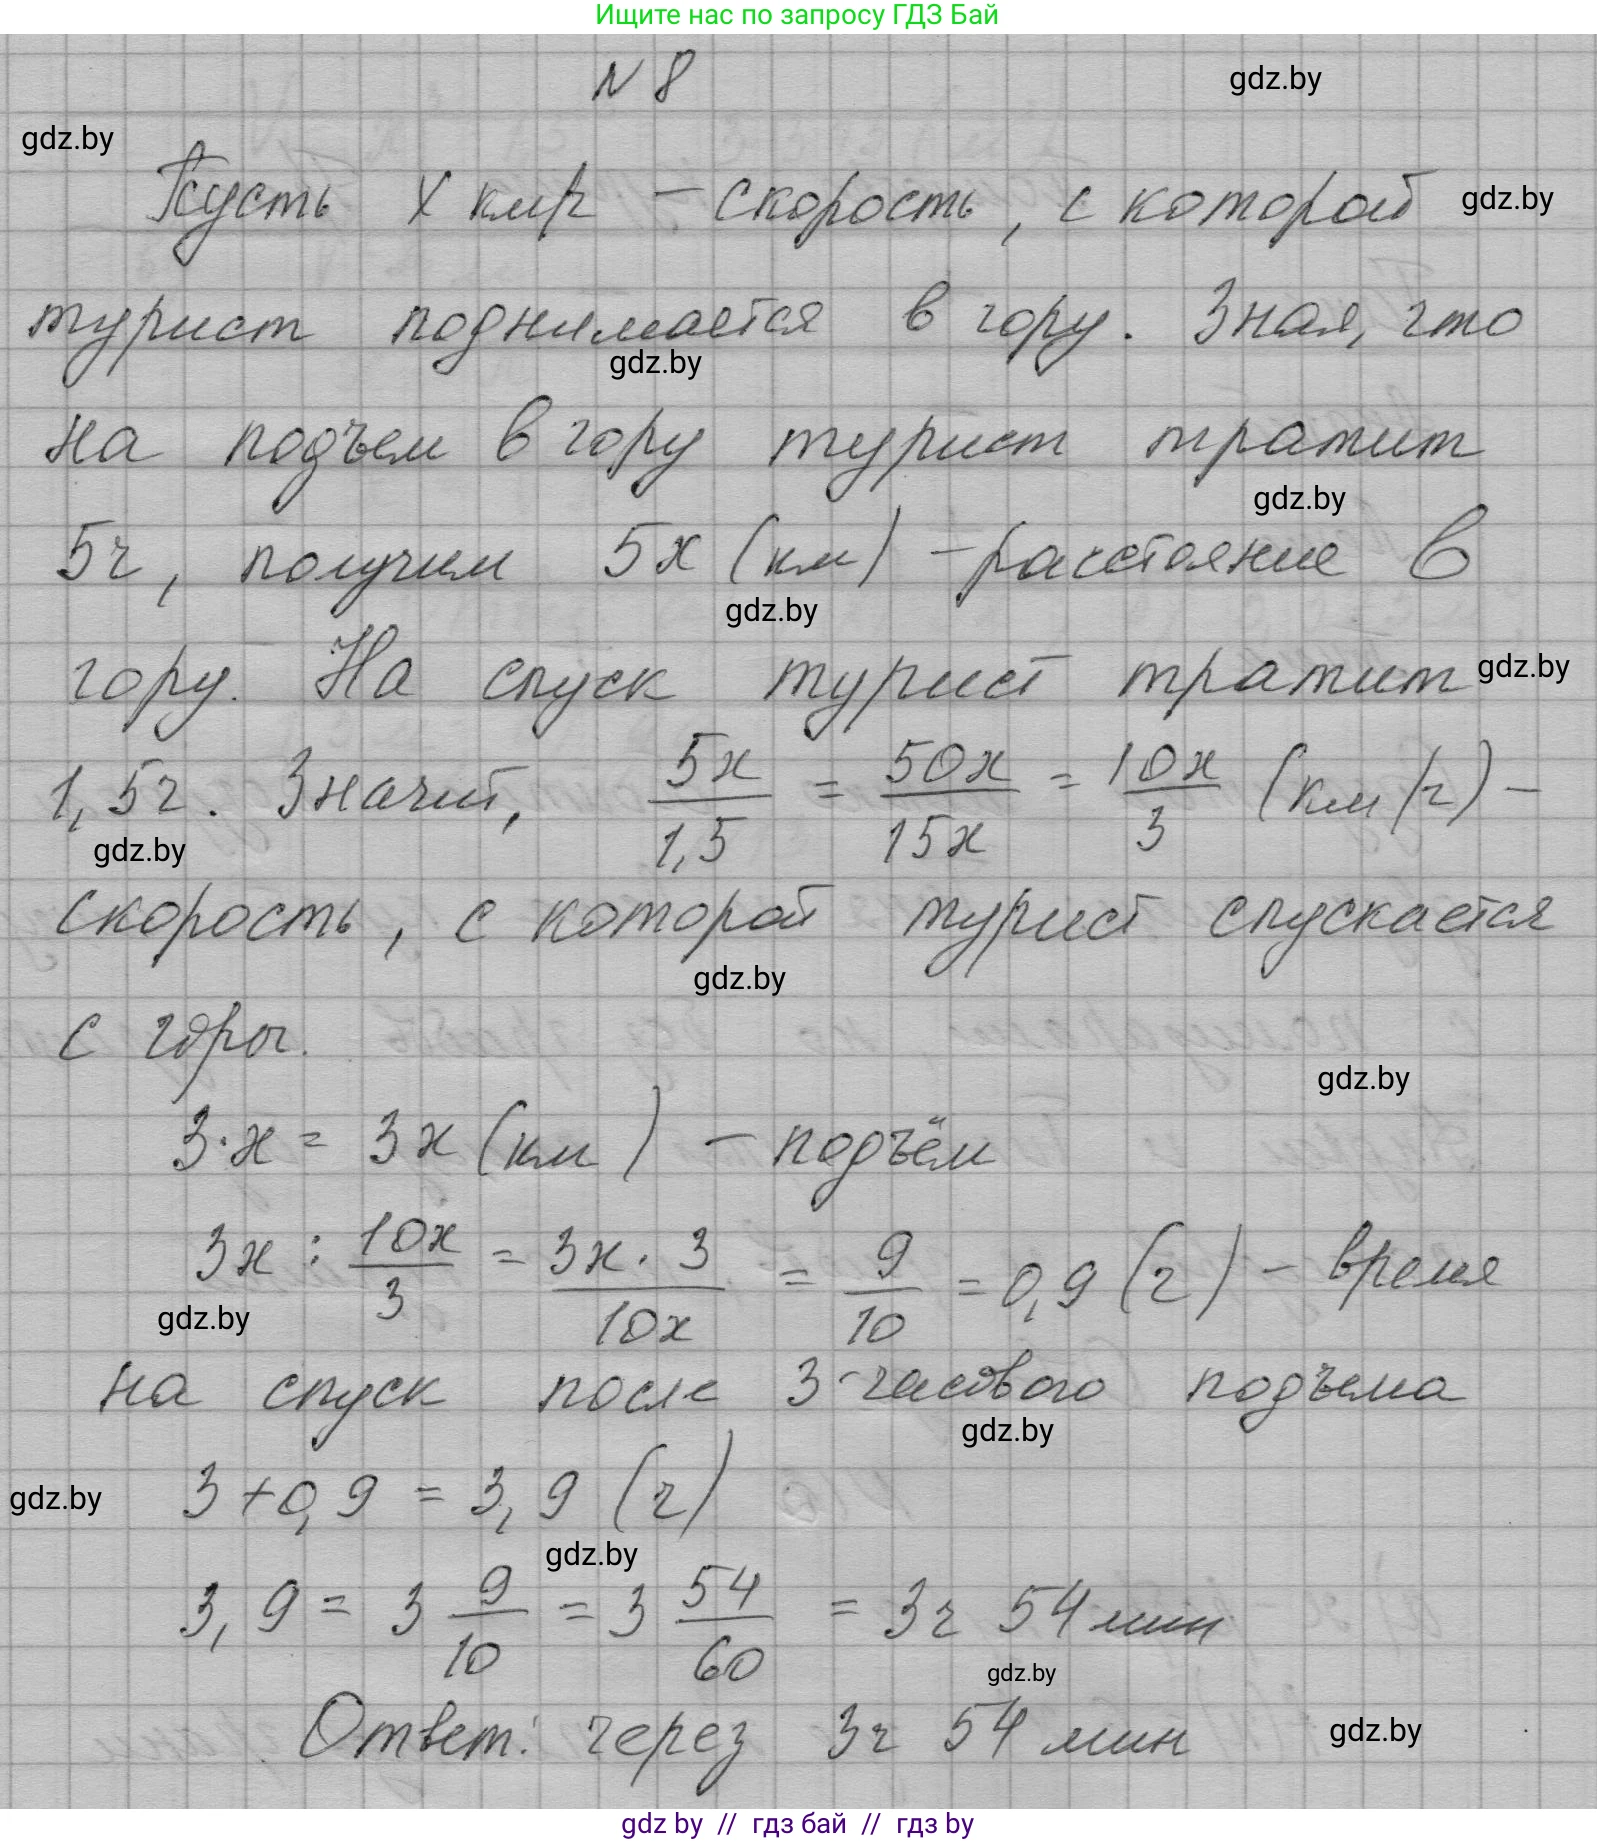 Ищите нас по запросу ГДЗ Бай
№ 8
gdz.by
gdz.by
Пусть x км/ч – скорость, с которой
gdz.by
турист поднимается в гору. Зная, что
gdz.by
на подъем в гору турист тратит
gdz.by
5ч, получим 5x (км) – расстояние в
gdz.by
гору. На спуск турист тратит
gdz.by
1,5ч. Значит, 5x/1,5 = 50x/15x = 10x/3 (км/ч) –
gdz.by
скорость, с которой турист спускается
gdz.by
с горы.
gdz.by
3·x = 3x (км) – подъём
3x : 10x/3 = 3x·3/10x = 9/10 = 0,9 (ч) – время
gdz.by
на спуск после 3-часового подъема
gdz.by
3+0,9 = 3,9 (ч)
gdz.by
gdz.by
3,9 = 3 9/10 = 3 54/60 = 3ч 54 мин
gdz.by
Ответ: через 3ч 54 мин
gdz.by
gdz by // гдз бай // гдз by